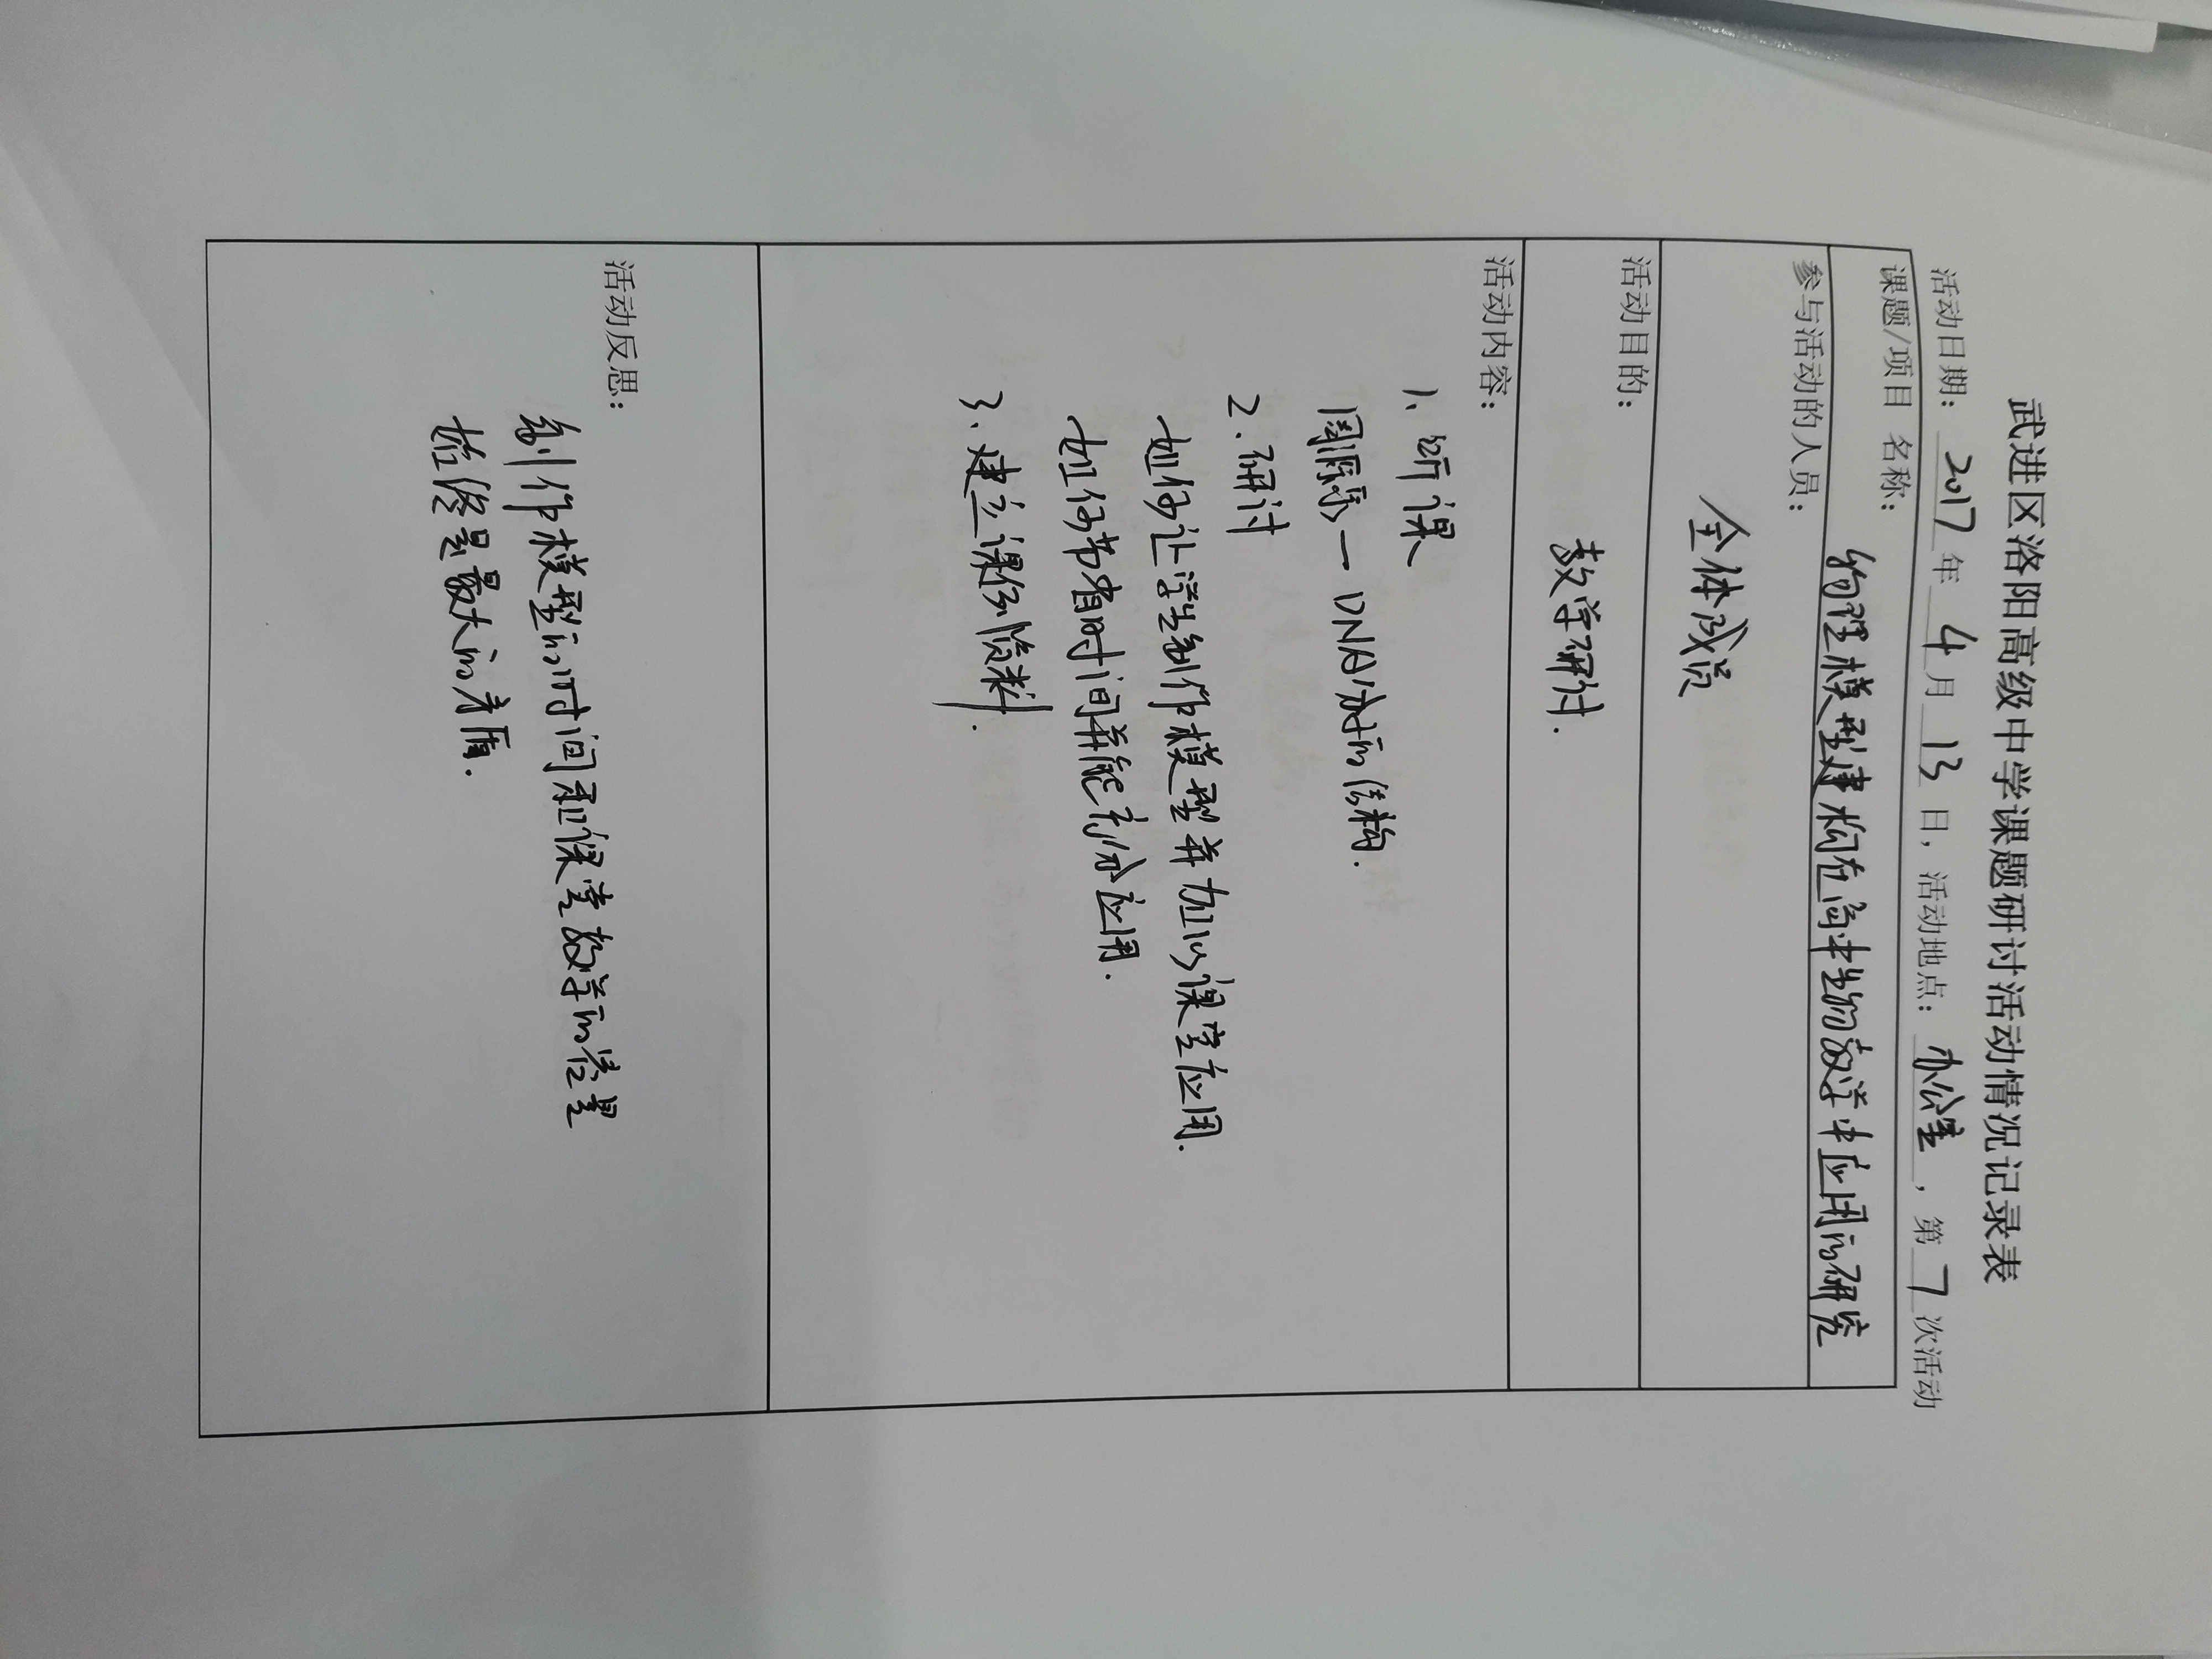 武进区洛阳高级中学课题研讨活动情况记录表
活动日期：2017年4月13日，活动地点：办公室，第7次活动
课题/项目 名称：物理模型建构在高中生物教学中应用的研究
参与活动的人员：
全体成员
活动目的：
教学研讨.
活动内容：
1、听课
周际—DNA分子的结构.
2.研讨
如何让学生制作模型并加以课堂应用.
如何节省时间并能充分应用.
3、建立课例资料.
活动反思：
制作模型的时间和课堂教学的容量
始终是最大的矛盾.